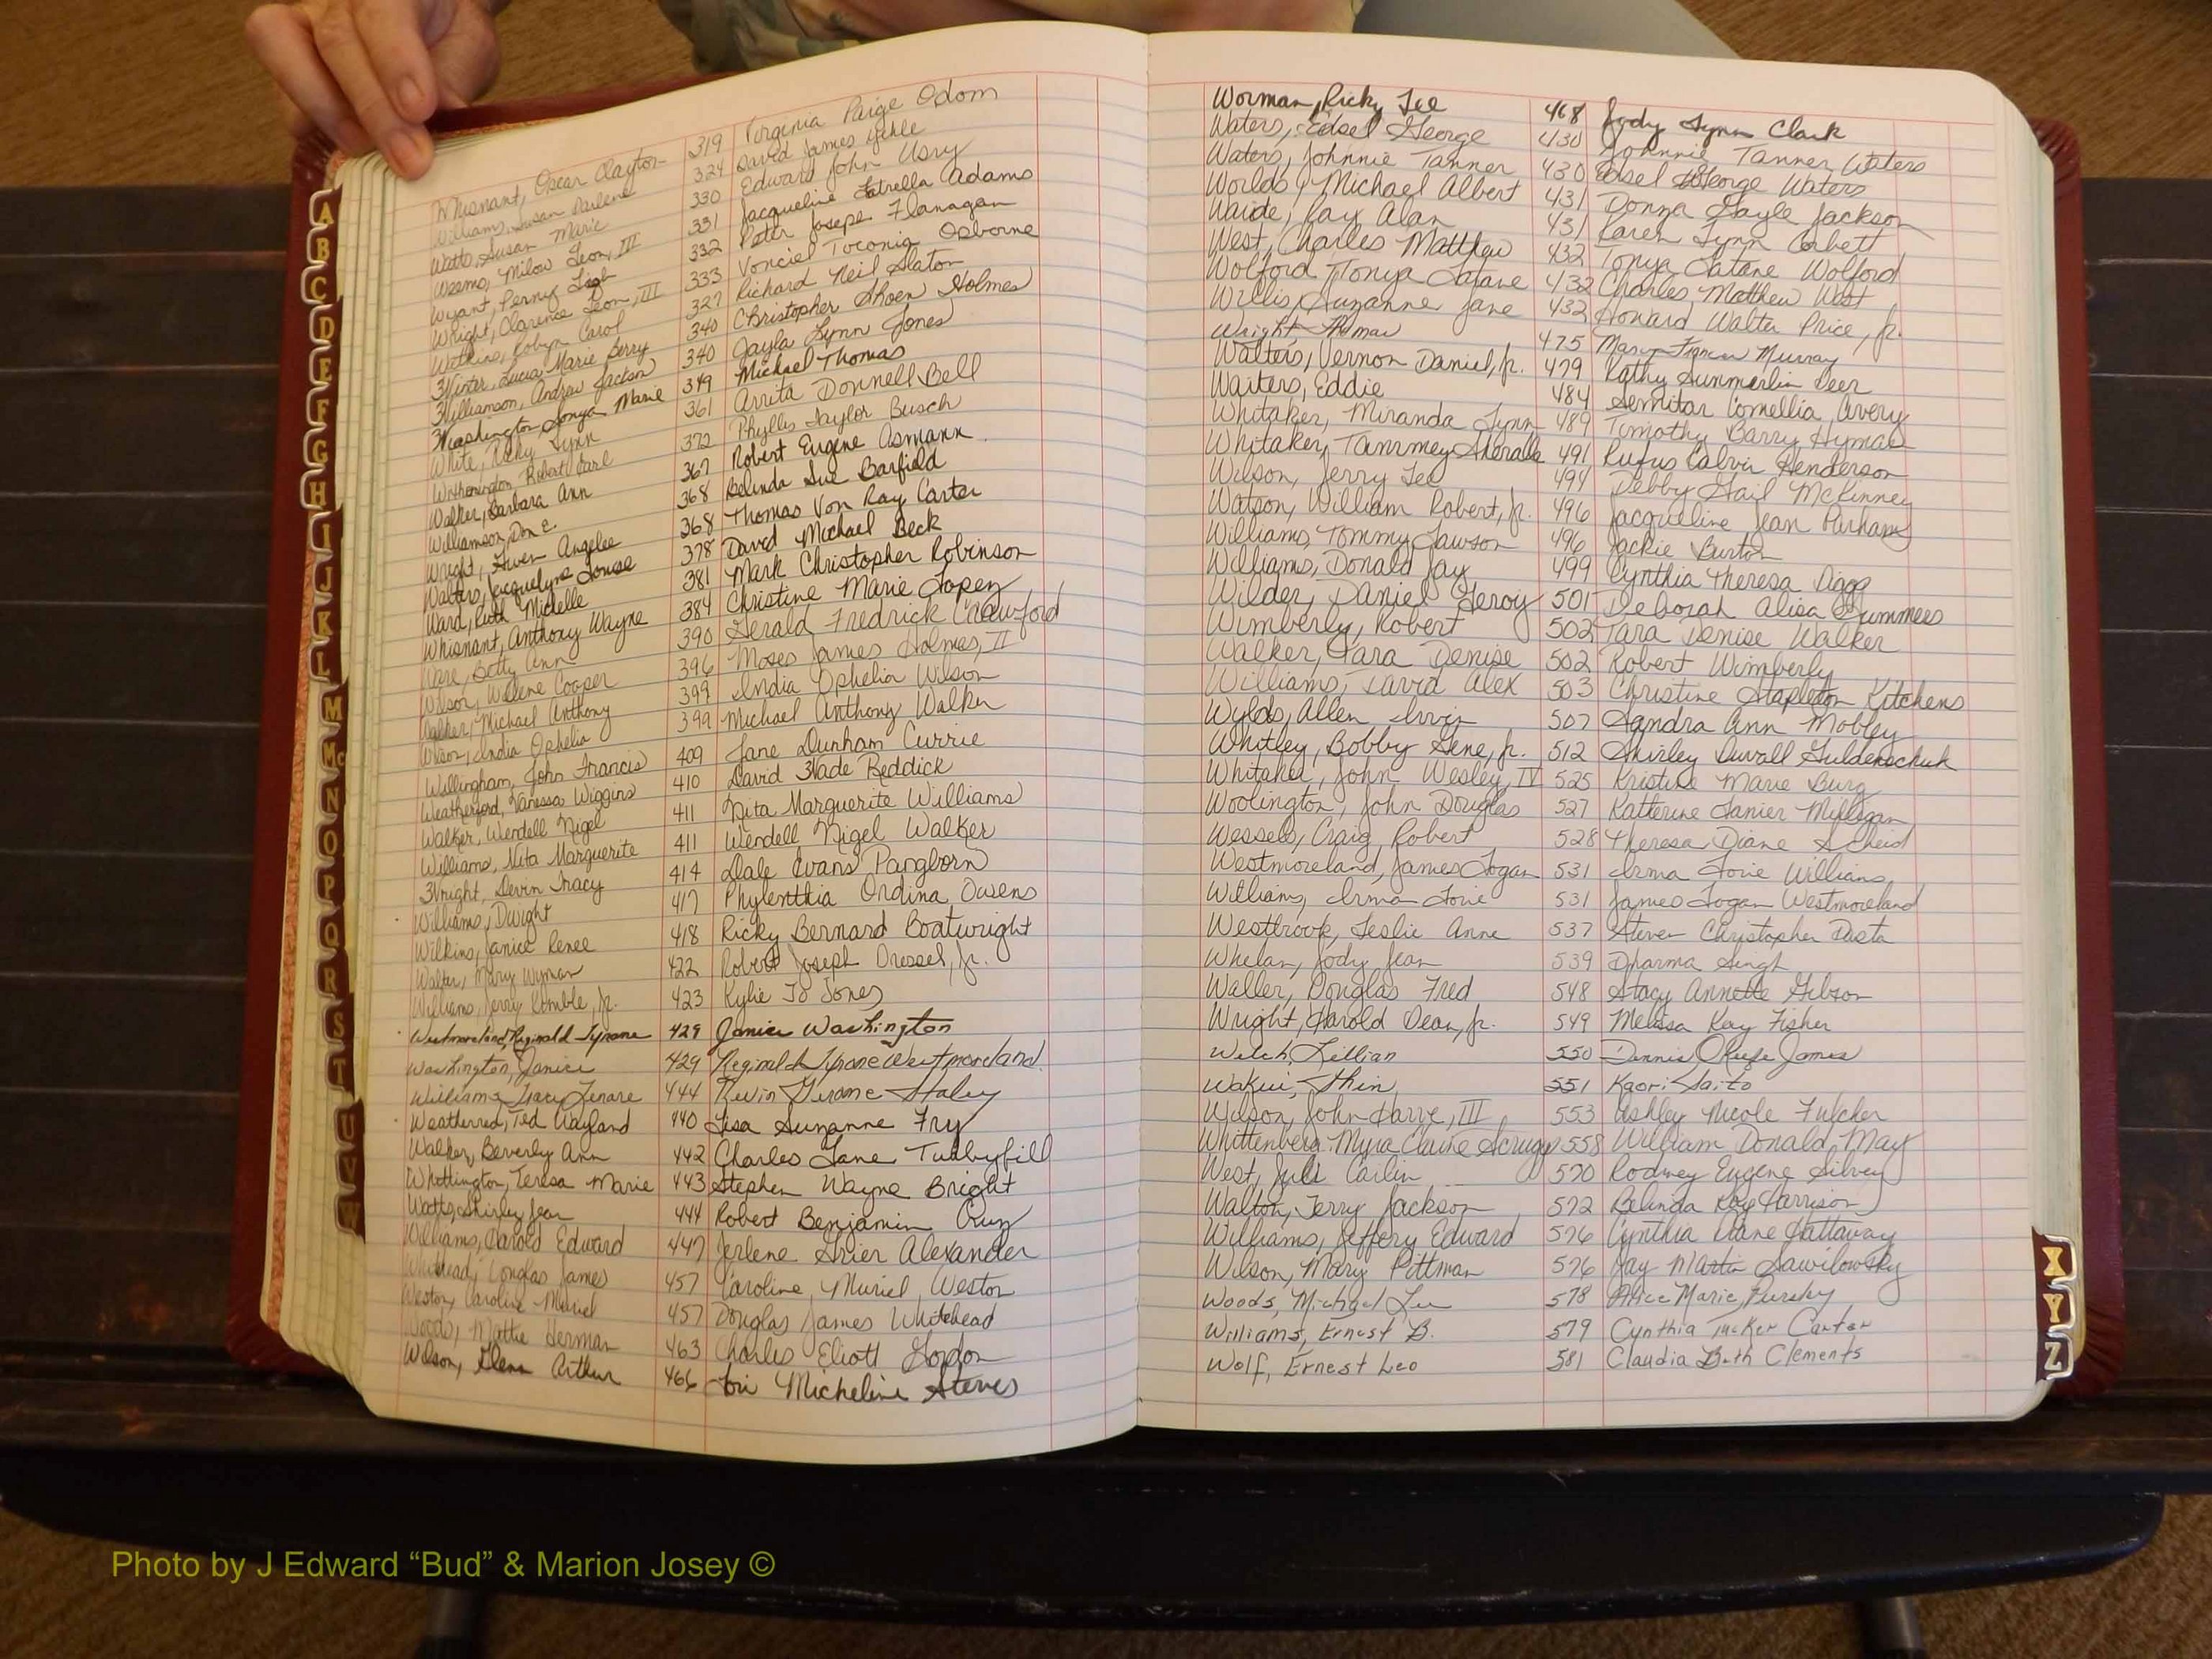 Whisnant, Oscar Clayton 319 Virginia Paige Odom
Williams, Susan Darlene 324 David James Yehle
Watts, Susan Marie 330 Edward John Usry
Weems, Milow Leon, III 331 Jacqueline Latrella Adams
Wyant, Penny Leigh 332 Peter Joseph Flanagan
Wright, Clarence Leon, III 333 Vonciel Toconia Osborne
Watkins, Robyn Carol 327 Richard Neil Slaton
Winter, Lucia Marie Berry 340 Christopher Shoen Holmes
Williamson, Andrew Jackson 340 Jayla Lynn Jones
Washington, Sonya Marie 349 Michael Thomas
White, Ricky Lynn 361 Arrita Donnell Bell
Witherington, Robert Carl 372 Phyllis Taylor Busch
Walker, Barbara Ann 367 Robert Eugene Asmann
Williamson, Don E. 368 Belinda Sue Barfield
Wright, Gwen Angelee 368 Thomas Von Ray Carter
Walters, Jacquelyne Louise 378 David Michael Beck
Ward, Ruth Michelle 381 Mark Christopher Robinson
Whisnant, Anthony Wayne 384 Christine Marie Lopez
Ware, Betty Ann 390 Gerald Fredrick Crawford
Wilson, Welene Cooper 396 Moses James Holmes, II
Walker, Michael Anthony 399 India Ophelia Wilson
Wilson, India Ophelia 399 Michael Anthony Walker
Willingham, John Francis 409 Jane Durham Currie
Weatherford, Vanessa Wiggins 410 David Wade Reddick
Walker, Wendell Nigel 411 Nita Marguerite Williams
Williams, Nita Marguerite 411 Wendell Nigel Walker
Wright, Devin Tracy 414 Dale Evans Pangborn
Williams, Dwight 417 Phylenthia Ordina Owens
Wilkins, Janice Renee 418 Ricky Bernard Boatwright
Walter, Mary Wyman 422 Robert Joseph Dressel, Jr.
Williams, Jerry Kimble, Jr. 423 Kylie Jo Jones
Westmoreland, Reginald Tyrone 429 Janice Washington
Washington, Janice 429 Reginald Tyrone Westmoreland
Williams, Tracy Lenare 444 Kevin Jerome Staley
Weatherred, Ted Wayland 440 Lisa Suzanne Fry
Walker, Beverly Ann 442 Charles Lane Turbyfill
Whittington, Teresa Marie 443 Stephen Wayne Bright
Watts, Shirley Jean 444 Robert Benjamin Cruz
Williams, Darold Edward 447 Jerlene Grier Alexander
Whitehead, Douglas James 457 Caroline Muriel Weston
Weston, Caroline Muriel 457 Douglas James Whitehead
Woods, Mattie Herman 463 Charles Eliott Gordon
Wilson, Glenn Arthur 466 Lori Micheline Steves
A
B
C
D
E
F
G
H
I
J
K
L
M
Mc
N
O
P
Q
R
S
T
U
V
W
Worman, Ricky Lee 468 Jody Lynn Clark
Waters, Edsel George 430 Johnnie Tanner Waters
Waters, Johnnie Tanner 430 Edsel George Waters
Worlds, Michael Albert 431 Donza Gayle Jackson
Waide, Ray Alan 431 Karen Lynn Corbett
West, Charles Matthew 432 Tonya Latane Wolford
Wolford, Tonya Latane 432 Charles Matthew West
Willis, Suzanne Jane 432 Howard Walter Price, Jr.
Wright, Thomas 475 Mary Frances Murray
Walters, Vernon Daniel, Jr. 479 Kathy Summerlin Deer
Waiters, Eddie 484 Semitar Comellia Avery
Whitaker, Miranda Lynn 489 Timothy Barry Hyman
Whitaker, Tammey Sherale 491 Rufus Calvin Henderson
Wilson, Jerry Lee 494 Debby Gail McKinney
Watson, William Robert, Jr. 496 Jacqueline Jean Parham
Williams, Tommy Lawson 496 Jackie Burton
Williams, Donald Jay 499 Cynthia Theresa Digg
Wilder, Daniel Leroy 501 Deborah Alisa Summers
Wimberly, Robert 502 Tara Denise Walker
Walker, Tara Denise 502 Robert Wimberly
Williams, David Alex 503 Christine Stapleton Kitchens
Wylds, Allen Irvin 507 Sandra Ann Mobley
Whitley, Bobby Gene, Jr. 512 Shirley Duvall Guldenschuk
Whitaker, John Wesley, IV 525 Kristine Marie Burg
Woolington, John Douglas 527 Katherine Lanier Milligan
Wessels, Craig Robert 528 Theresa Diane Scheid
Westmoreland, James Logan 531 Irma Lovie Williams
Williams, Irma Lovie 531 James Logan Westmoreland
Westbrook, Leslie Anne 537 Steven Christopher Dasta
Whelan, Jody Jean 539 Dharma Singh
Waller, Douglas Fred 548 Stacy Annette Gibson
Wright, Harold Dean, Jr. 549 Melissa Kay Fisher
Welch, Lillian 550 Dennis Okeefe James
Wakui, Shin 551 Kaori Saito
Wilson, John Harve, III 553 Ashley Nicole Fulcher
Whittenberg, Myra Claire Scruggs 558 William Donald May
West, Juli Carlin 570 Rodney Eugene Silvey
Walton, Jerry Jackson 572 Belinda Kay Harrison
Williams, Jeffery Edward 576 Cynthia Diane Hattaway
Wilson, Mary Pittman 576 Jay Martin Sawilowsky
Woods, Michael Lee 578 Alice Marie Pursky
Williams, Ernest B. 579 Cynthia Tucker Carter
Wolf, Ernest Leo 581 Claudia Beth Clements
X
Y
Z
Photo by J Edward “Bud” & Marion Josey ©